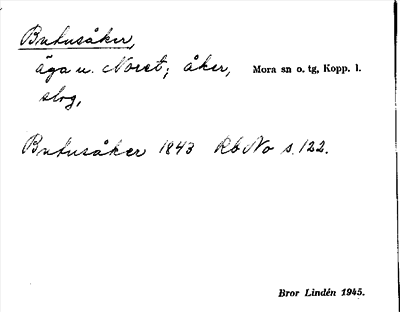 Butusåker,
äga u. Noret; åker, Mora sn o. tg, Kopp. l.
slog,
Butusåker 1843 RbNo s. 122.
Bror Lindén 1945.